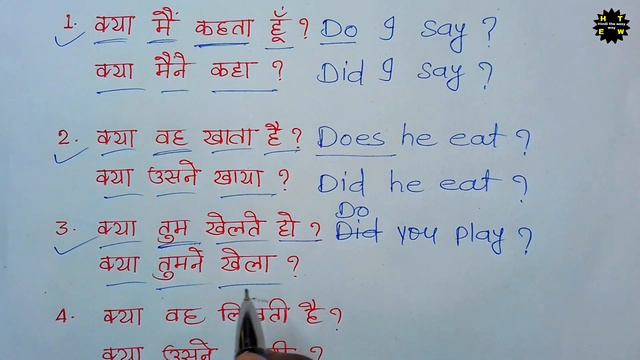 1. क्या मैं कहता हूँ ? Do I say ?
क्या मैने कहा ? Did I say ?
2. क्या वह खाता है ? Does he eat ?
क्या उसने खाया ? Did he eat ?
3. क्या तुम खेलते हो ? Did Do you play ?
क्या तुमने खेला ?
4. क्या वह है ?
क्या उसने ?
H T
Hindi the easy way
E W